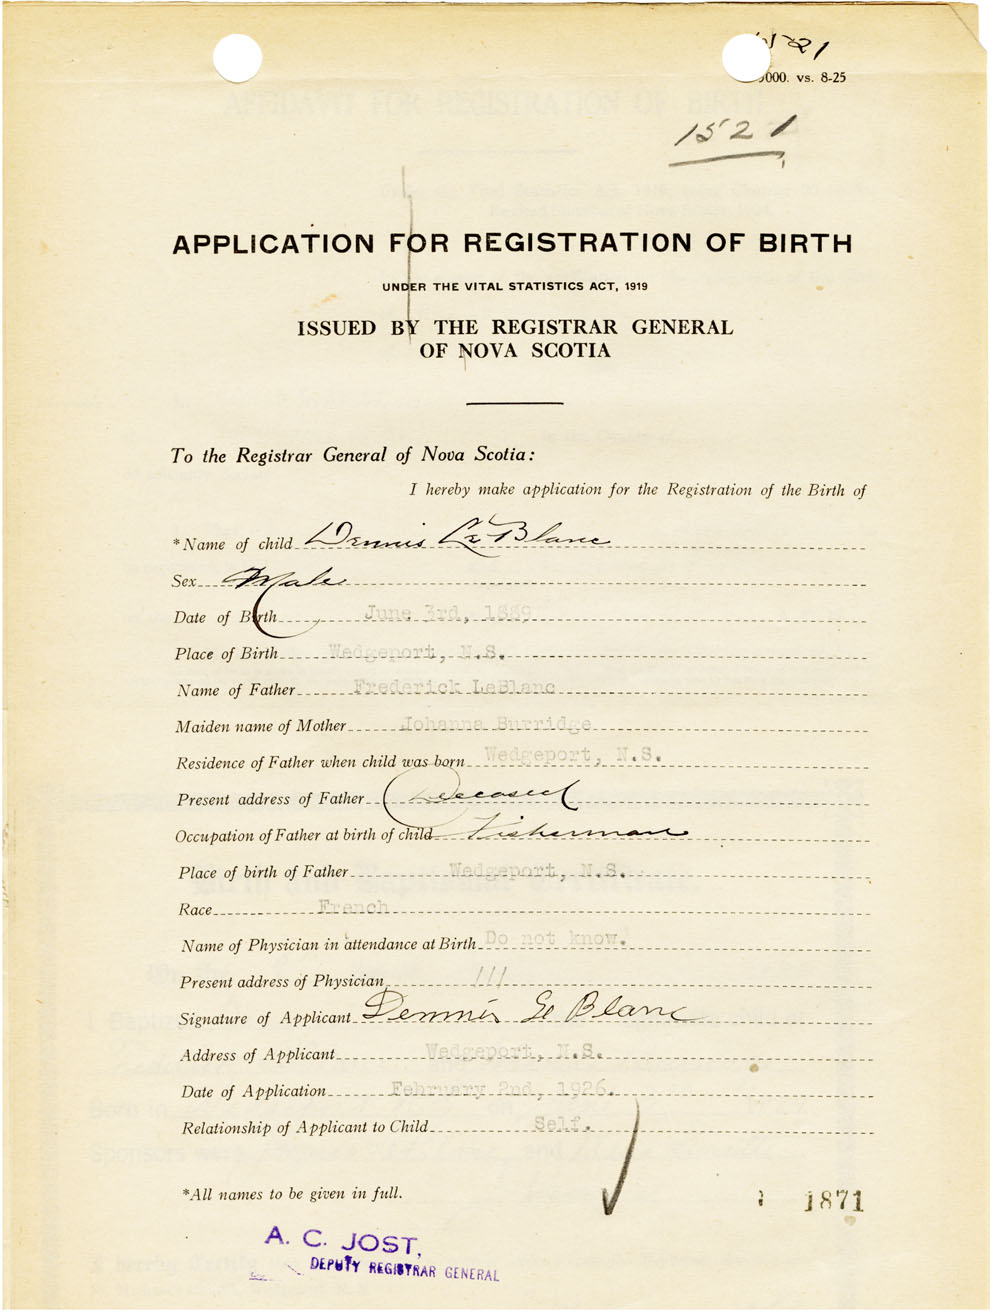 1521
000. vs. 8-25
1521
APPLICATION FOR REGISTRATION OF BIRTH
UNDER THE VITAL STATISTICS ACT, 1919
ISSUED BY THE REGISTRAR GENERAL
OF NOVA SCOTIA
To the Registrar General of Nova Scotia:
I hereby make application for the Registration of the Birth of
*Name of child Dennis Le Blanc
Sex Male
Date of Birth June 3rd, 1889
Place of Birth Wedgeport, N.S.
Name of Father Frederick LeBlanc
Maiden name of Mother Johanna Burridge
Residence of Father when child was born Wedgeport, N.S.
Present address of Father Deceased
Occupation of Father at birth of child Fisherman
Place of birth of Father Wedgeport, N.S.
Race French
Name of Physician in attendance at Birth Do not know.
Present address of Physician ///
Signature of Applicant Dennis Le Blanc
Address of Applicant Wedgeport, N.S.
Date of Application February 2nd, 1926.
Relationship of Applicant to Child Self.
*All names to be given in full.
1871
A. C. JOST,
DEPUTY REGISTRAR GENERAL